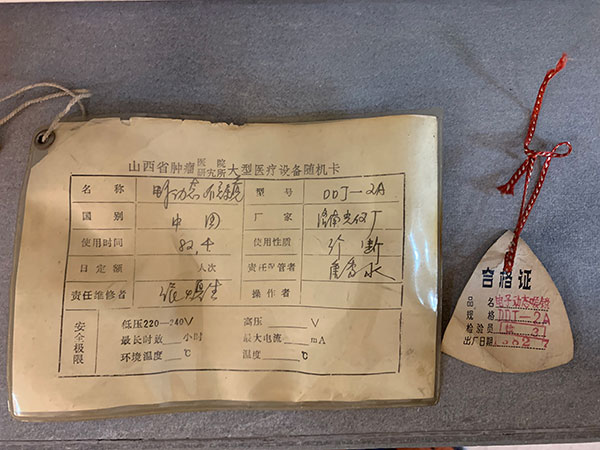 山西省肿瘤医院研究所大型医疗设备随机卡
名称 电子动态 型号 DDJ-2A
国别 中国 厂家 济南光仪厂
使用时间 82.4 使用性质 诊断
日定额 人次 责任保管者
责任维修者 操作者
安全极限
低压220—240V 高压 V
最长时效 小时 最大电流 mA
环境温度 ℃ 温度 ℃
合格证
品名 电子动态
规格 DDJ-2A
检验员 检 31
出厂日期 1982 7